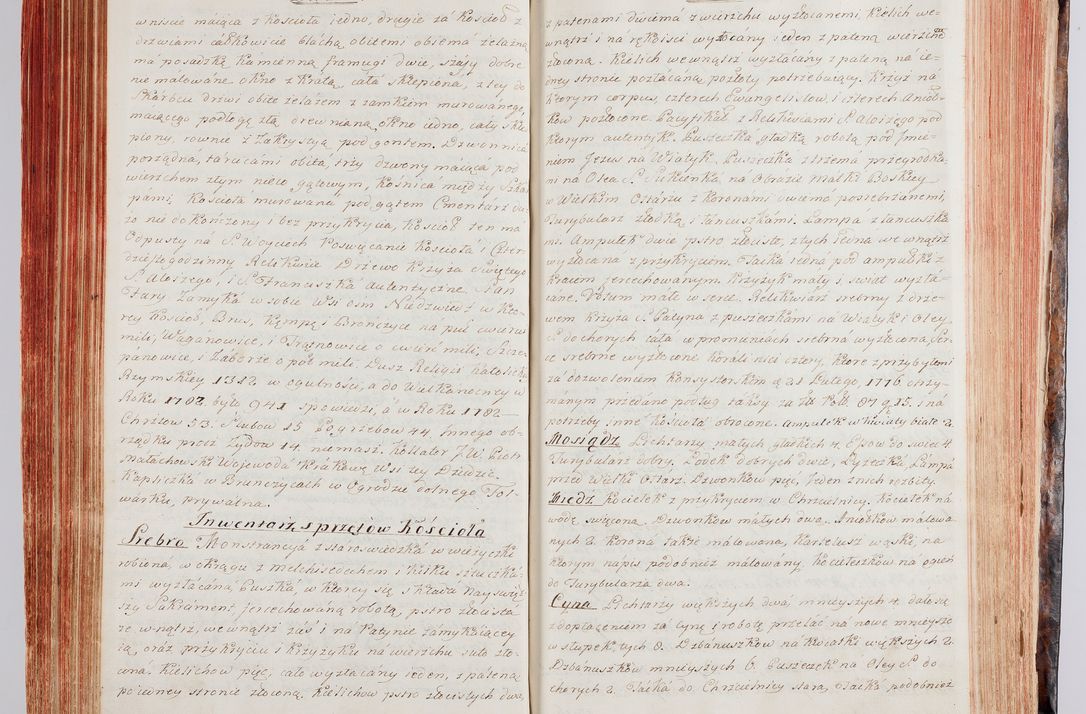 wniście máiąca z Kościoła iedno, drugie zá Kościoł z
drzwiami całkowicie bláchą obitemi obiema żelazną
ma posadzkę Kamienną framugi dwie, szafy dobre
nie malowane okno z Kratą, cała sklepiona, z tey do
Skárbcu drzwi obite żelazem z zamkiem murowanego,
maiącego podłogę złą drewnianą okno iedno, cały skle
piony, rownie z Zakrystyą pod gontem. Dzwonnica
porządna, tarcicami obita, trzy dzwony máiąca pod
wierzchem złym nieco gątowym, Kośnica między Szka
pámi, Kościoła murowana pod gątem Cmentárz
żo nie do Kończony i bez przykrycia, Kościoł ten ma
Odpusty ná S. Woyciech Poświęcanie Kościoła Czter
dziestogodzinny Relikwie Drzewo Krzyża Świętego
S. Aloizego, i S. Franciszka autentyczne, Pan
Fary Zamyká w sobie Wsi osm Niedzwiedź w Któ
rey Kościoł, Brus, Kępnę i Brończyce na puł cwierć
mili, Waganowice, i Trątnowice o cwierć mili, Szcze
panowice, i Zaborze o poł mili. Dusz Religii Katolickiey
Rzymskiey 1312 w ogulności, a do Wielkanocney w
Roku 1782. było 941 spowiedzi, á w Roku 1782
Chrztow 53. Slubow 15 Pogrzebow 44. Innego ob-
rządku procz Zydow 14. niemasz. Kollator J.W. Piotr
Małachowski Wojewoda Krakow: Wsi tey Dziedzic.
Kapliczka w Brończycach w Ogrodzie dolnego Fol-
warku, prywatna.
Inwentarz sprzętow Kościoła
Srebro Monstrancyjá z stároswiecká w wieżyczki
robiona, w okrągu z Melchisedechem i Kilku sztuczká-
mi wyzłácána, Puszká, w Ktorey się chowa Nayświęt-
szy Sakrament jerechowaną robotą, pstro złocistá
ze wnątrz, we wnątrz záś i ná Patynie zámykáiącey
ią, oraz przykryciu i Krzyżyku ná wierzchu suto zło-
coná. Kielichow pięć, cało wyzłacany ieden, z pateną
po iedney stronie złoconą. Kielichow pstro złocistych dwa,
z patenami dwiema z wierzchu wyzłocanemi, Kielich we-
wnątrz i na rękoiści wyzłocany ieden z pateną wierzchem
złoconą. Kielich wewnątrz wyzłacany z pateną ná ie-
dney stronie pozłacaną pozłoty potrzebuiący. Krzyż ná
Ktorym corpus, czterech Ewangelistow i czterech Aniół-
kow pozłocone. Pacyfikał z Relikwiami S. Aloizego pod
Ktorym autentyk. Puszeczka głatką robotą pod Jmie-
niem Jezus na Wiatyk. Puszeczka z trzema przegrodka
mi ná Olea S. Sukienká ná Obrázie Mátki Boskiey
w Wielkim Ołtarzu z Koronami dwiema posrebrzanemi,
Turybularz złodką i łáncuszkámi. Lampa z łancuszka
mi. Ampułek dwie pstro złociste, z tych iedna we wnątrz
wyzłacana z przykryciem. Tácká iedná pod ampułki z
kraiem jerechowanym. Krzyżyk mały i, swiat wyzła-
cáne. Wotum małe w serce. Relikwiarz srebrny z drze-
wem Krzyża S. Patyna z puszeczkami ná Wiatyk i Oley
S. do chorych cała w promieniach srebrna wyzłocona, ser-
ce srebrne wyzłocone korali nici cztery, Ktore z przybyłemi
zá dozwoleniem Konsystorskim d. 21 Lutego, 1776. otrzy-
manym przedano podług taksy za złt Pols. 87 g. 15. i ná
potrzeby inne Kościoła obrocone. Ampułek w kwiaty białe 2.
Mosiądz Lichtarzy małych, głatkich 4. Cpow do swiec 4
Turybularz dobry. Łodek dobrych dwie, Łyżeczká, Lámpá
przed Wielki Ołtarz. Dzwonkow pięć, Jeden z nich rozbity.
Miedz Kociełek z przykryciem w Chrzcielnicy, Kociełek ná
wodę święconą. Dzwonkow małych dwa. Aniołkow málowa
nych 2. Koroná także málowaná, Kartelusz wąski, na
Ktorym napis podobnież malowany, Kociełeczkow ná ogień
do Turybularza dwa.
Cyna Lichtarzy większych dwá, mnieyszych 4. dałoby
z dopłaceniem zá cynę i robotę przelać ná nowe mnieysze
w słupek, tych 8. Dzbánuszkow ná Kwiatki większych 2.
Dzbánuszkow mnieyszych 6. Puszeczek na Oley S. do
chorych 2. Tácká do Chrzcielnicy stara, Tácká podobnież